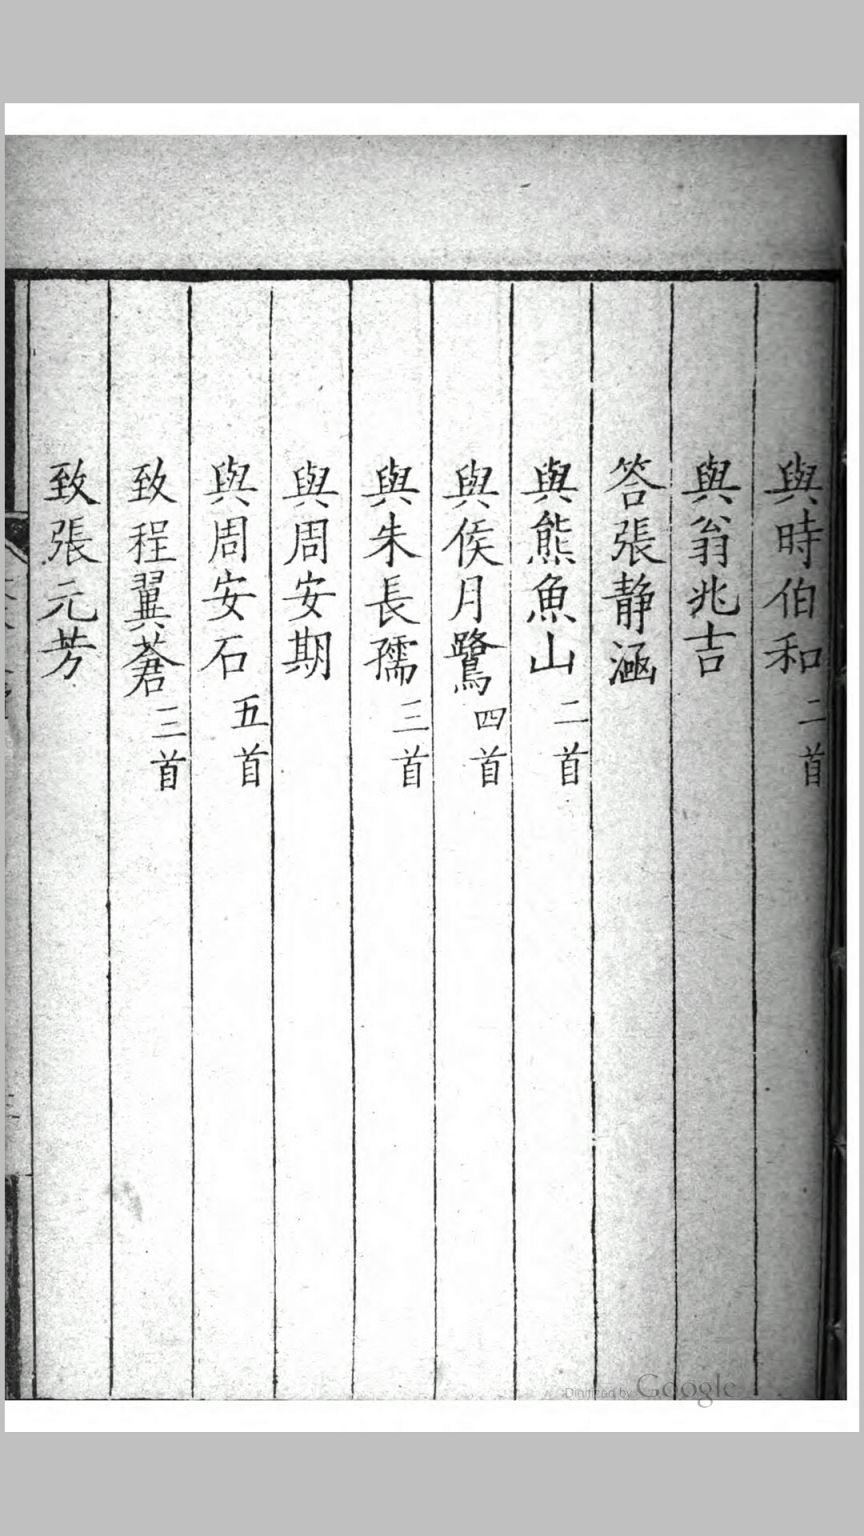 與時伯和二首
與翁兆吉
答張静涵
與熊魚山二首
與侯月鷺四首
與朱長孺三首
與周安期
與周安石五首
致程翼蒼三首
致張元芳
Digitized by Google